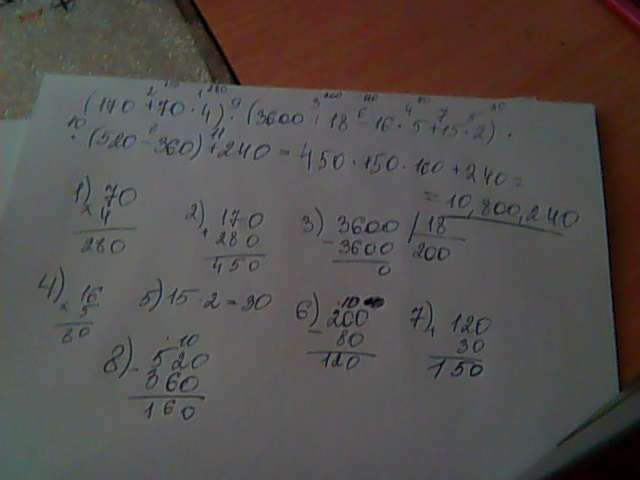 (170 + 70 · 4) · (3600 : 18 - 16 · 5 + 15 · 2) ·
· (520 - 360) + 240 = 450 · 150 · 160 + 240 =
= 10,800,240
1) 70
× 4
280
2) 170
+ 280
450
3) 3600 | 18
- 3600 200
0
4) 16
× 5
80
5) 15 · 2 = 30
6) 200
- 80
120
7) 120
+ 30
150
8) 520
- 360
160